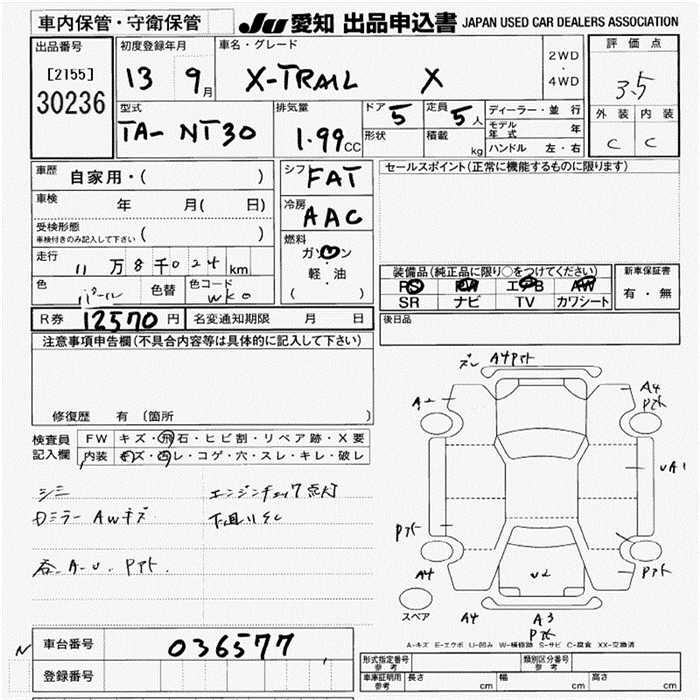 車内保管・守衛保管
JU 愛知 出品申込書 JAPAN USED CAR DEALERS ASSOCIATION
出品番号
[2155]
30236
初度登録年月
13 9月
車名・グレード
X-TRAIL X
2WD
・
4WD
評価点
3.5
外装 内装
C C
型式
TA-NT30
排気量
1.99 CC
ドア 5
形状
定員 5 人
積載 kg
ディーラー・並行
モデル年式 年
ハンドル 左・右
車歴 自家用・( )
車検 年 月( 日)
受検形態
車検付きのみ記入して下さい ( )
走行 11万8千024km
色 パール 色替 色コード WK0
シフト FAT
冷房 AAC
燃料
ガソリン
・
軽・油
( )
セールスポイント(正常に機能するものに限ります)
装備品(純正品に限り○をつけてください)
PS PW エアB AW
SR ナビ TV カワシート
新車保証書
有・無
R券 12570円 名変通知期限 月 日
後日品
注意事項申告欄(不具合内容等は具体的に記入して下さい)
修復歴 有 (箇所 )
検査員
記入欄
FW キズ・飛石・ヒビ割・リペア跡・X要
内装 キズ・汚レ・コゲ・穴・スレ・キレ・破レ
シミ エンジンチェック点灯
Dミラー AWキズ 下廻りサビ
各 A-U. Pアト.
ズレ A4Pアト
A2
A4
Pアト
UA1
Pアト
A4
Pアト
U2
スペア
A4
A3
Pアト
A-キズ E-エクボ U-凹み W-補修跡 S-サビ C-腐食 XX-交換済
N
車台番号 036577
登録番号
形式指定番号
参考
類別区分番号
参考
車庫証明用
参考
長さ cm 幅 cm 高さ cm